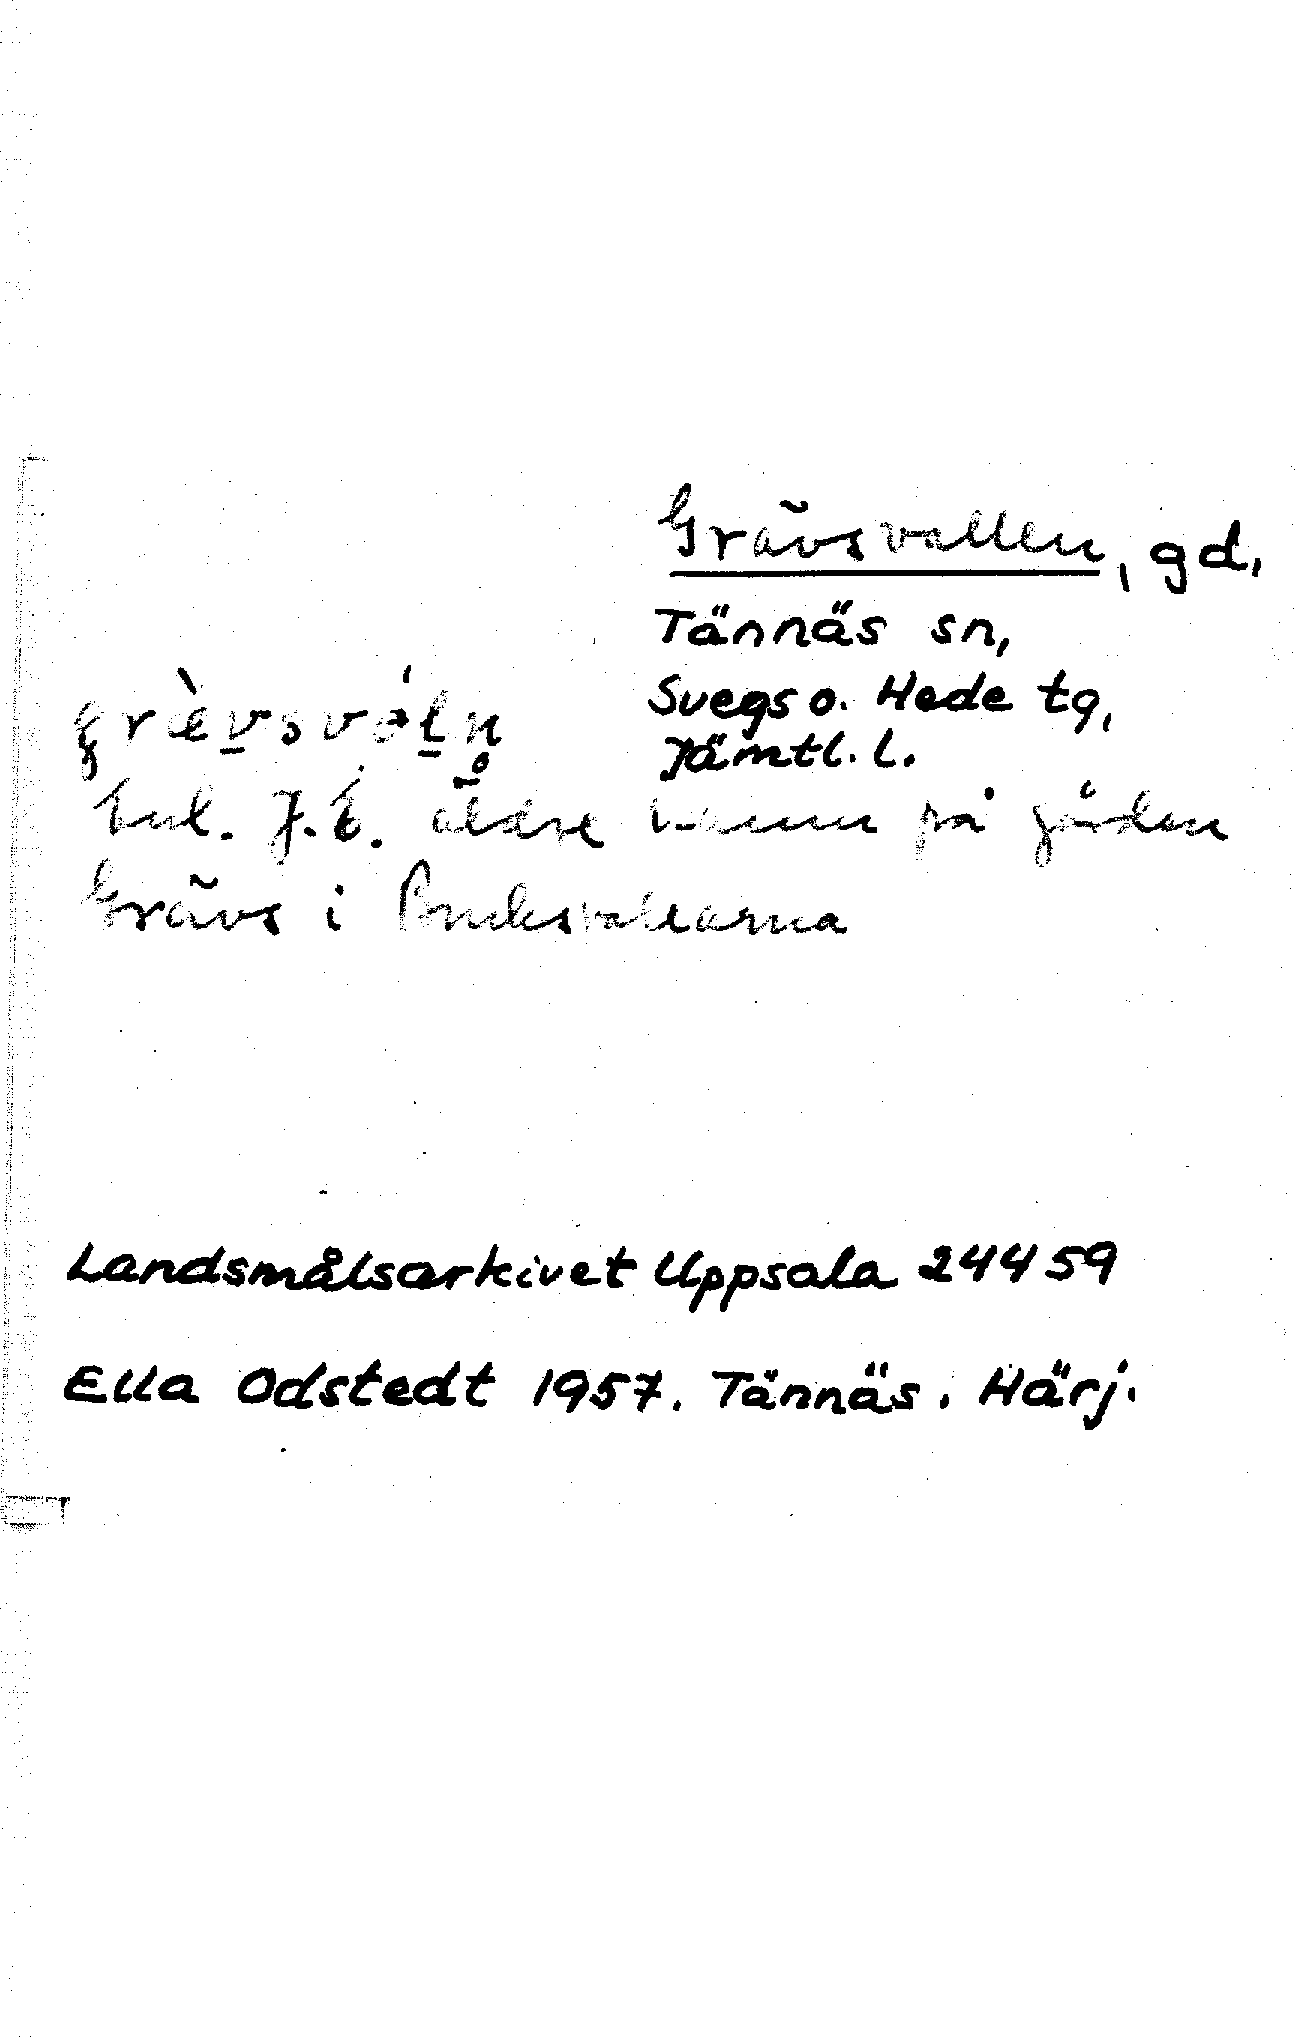 Grävsvallen, gd,
Tännäs sn,
Svegs o. Hede tg,
Jämtl. l.
grὲvsvάln̥
enl. J.E. äldre namn på gården
Grävs i Bruksvallarna
Landsmålsarkivet Uppsala 24459
Ella Odstedt 1957. Tännäs. Härj.